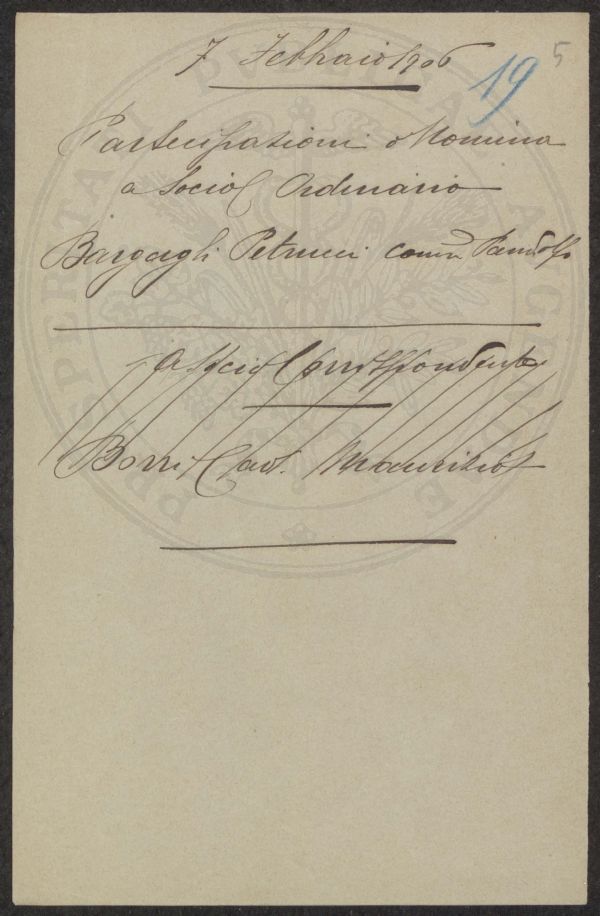 7 Febbraio 1906
19
5
Partecipazioni Nomina
a Socio Ordinario
Bargagli Petrucci Pandolfo
a Socio Corrispondente
Borri Cav. Maurizio
PROSPERITATI PUBLICAE AUGENDAE